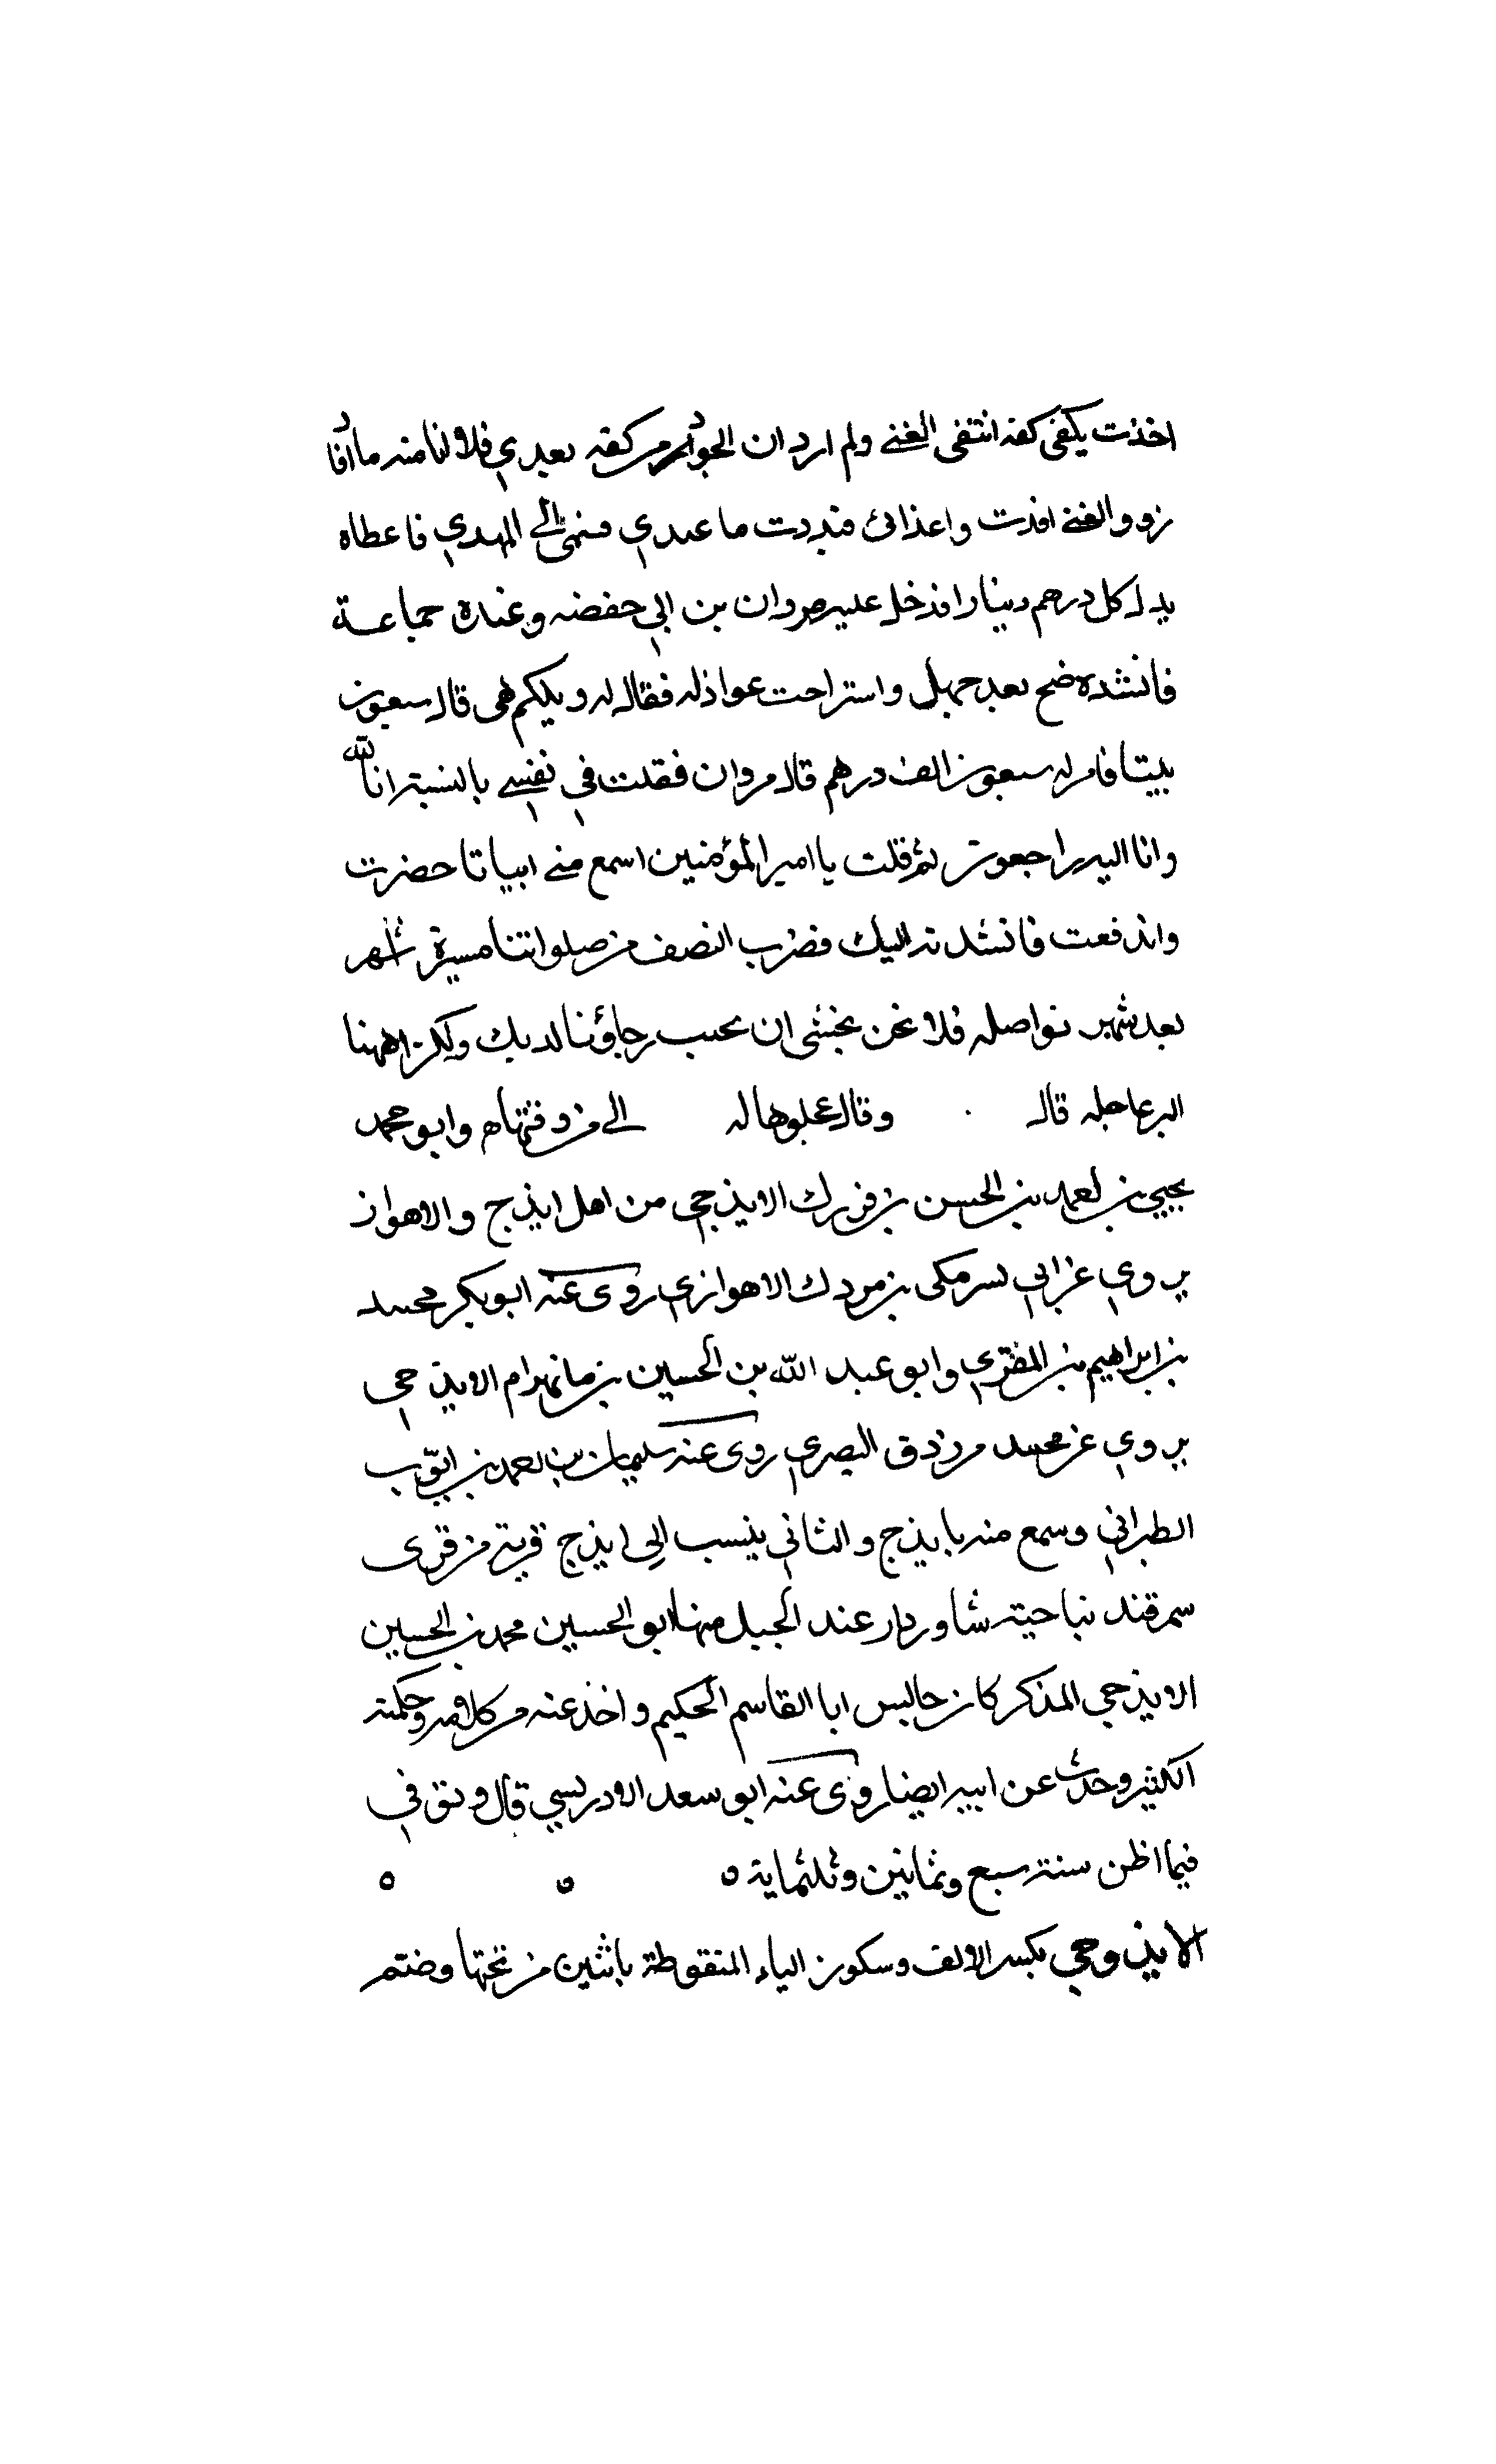 اخذت بكفي كفه ابتغى الغنى ولم ادر ان الجود من كفه يعدي فلا انا منه ما افاد
ذوو الغنى افدت واعداني فبددت ما عندي فنمى الى المهدي فاعطاه
بدل كل درهم دينارا فدخل عليه مروان بن ابي حفصه وعنده جماعة
فانشده صح بعد جهل واستراحت عواذله فقال له ويلكم هي قال سبعون
بيتا فامر له سبعون الف درهم قال مروان فقلت في نفسي بالنسبة انا لله
وانا اليه راجعون ثم قلت يا امير المؤمنين اسمع مني ابياتا حضرت
واندفعت فانشدته اليك فضرب النصف من صلواتنا مسيرة شهر
بعد شهر نواصله فلا نحن نخشى ان يخيب رجاؤنا لديك ولكن اهنا
البر عاجله قال وقال عجلوها له الى من وقتها ه وابو محمد
يحيى بن احمد بن الحسن بن فورك الايذجي من اهل ايذج والاهواز
يروي عن ابي بسر مكي بن مردك الاهوازي روى عنه ابو بكر محمد
بن ابراهيم بن المقري وابو عبد الله بن الحسين بن مانهرام الايذجي
يروي عن محمد مرزوق البصري روى عنه سليمان بن احمد بن ايوب
الطبراني وسمع منه بايذج والثاني ينسب الى ايذج قرية من قرى
سمرقند بناحية شاوردار عند الجبل منها ابو الحسين محمد بن الحسين
الايذجي المذكر كان جالس ابا القاسم الحكيم واخذ عنه من كلامه وحكمته
الكثير وحدث عن ابيه ايضا روى عنه ابو سعد الادريسي قال وتوفي
فيما اظن سنة سبع وثمانين وثلثماية ه ه ه
الايذوجي بكسر الالف وسكون الياء المنقوطة باثنين من تحتها وضم